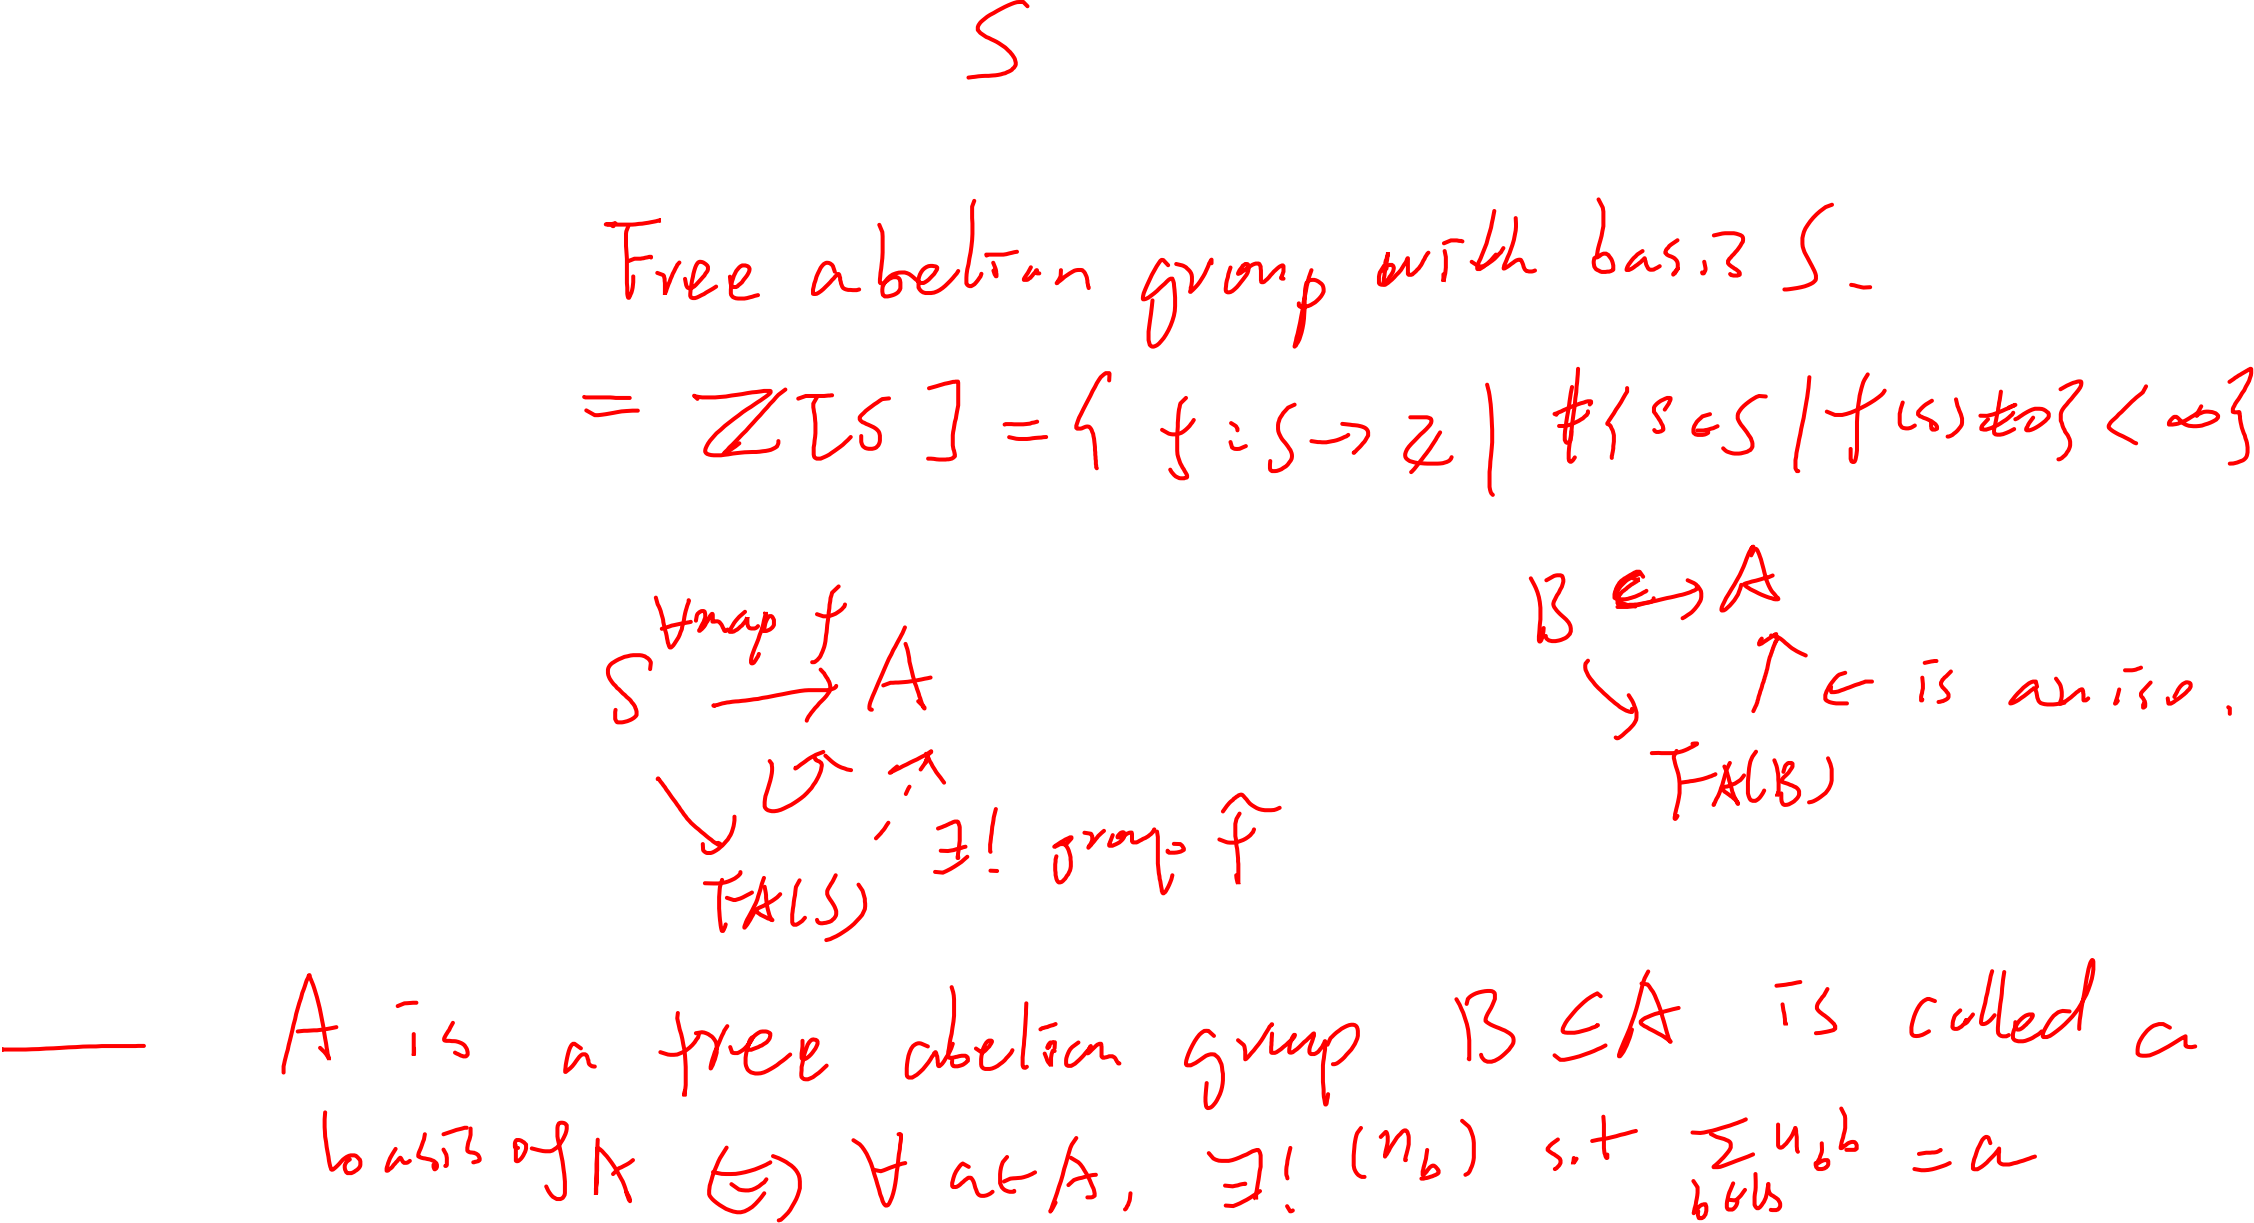 S
Free abelian group with basis S.
= ℤ[S] = { f : S → ℤ | #{ s ∈ S | f(s) ≠ 0 } < ∞ }
∀ map f
S → A
∃! group f̃
FA(S)
B ↪ A
← is an iso.
FA(B)
— A is a free abelian group B ⊆ A is called a
basis of A ⇔ ∀ a ∈ A, ∃! (n_b) s.t ∑_{b∈B} n_b b = a